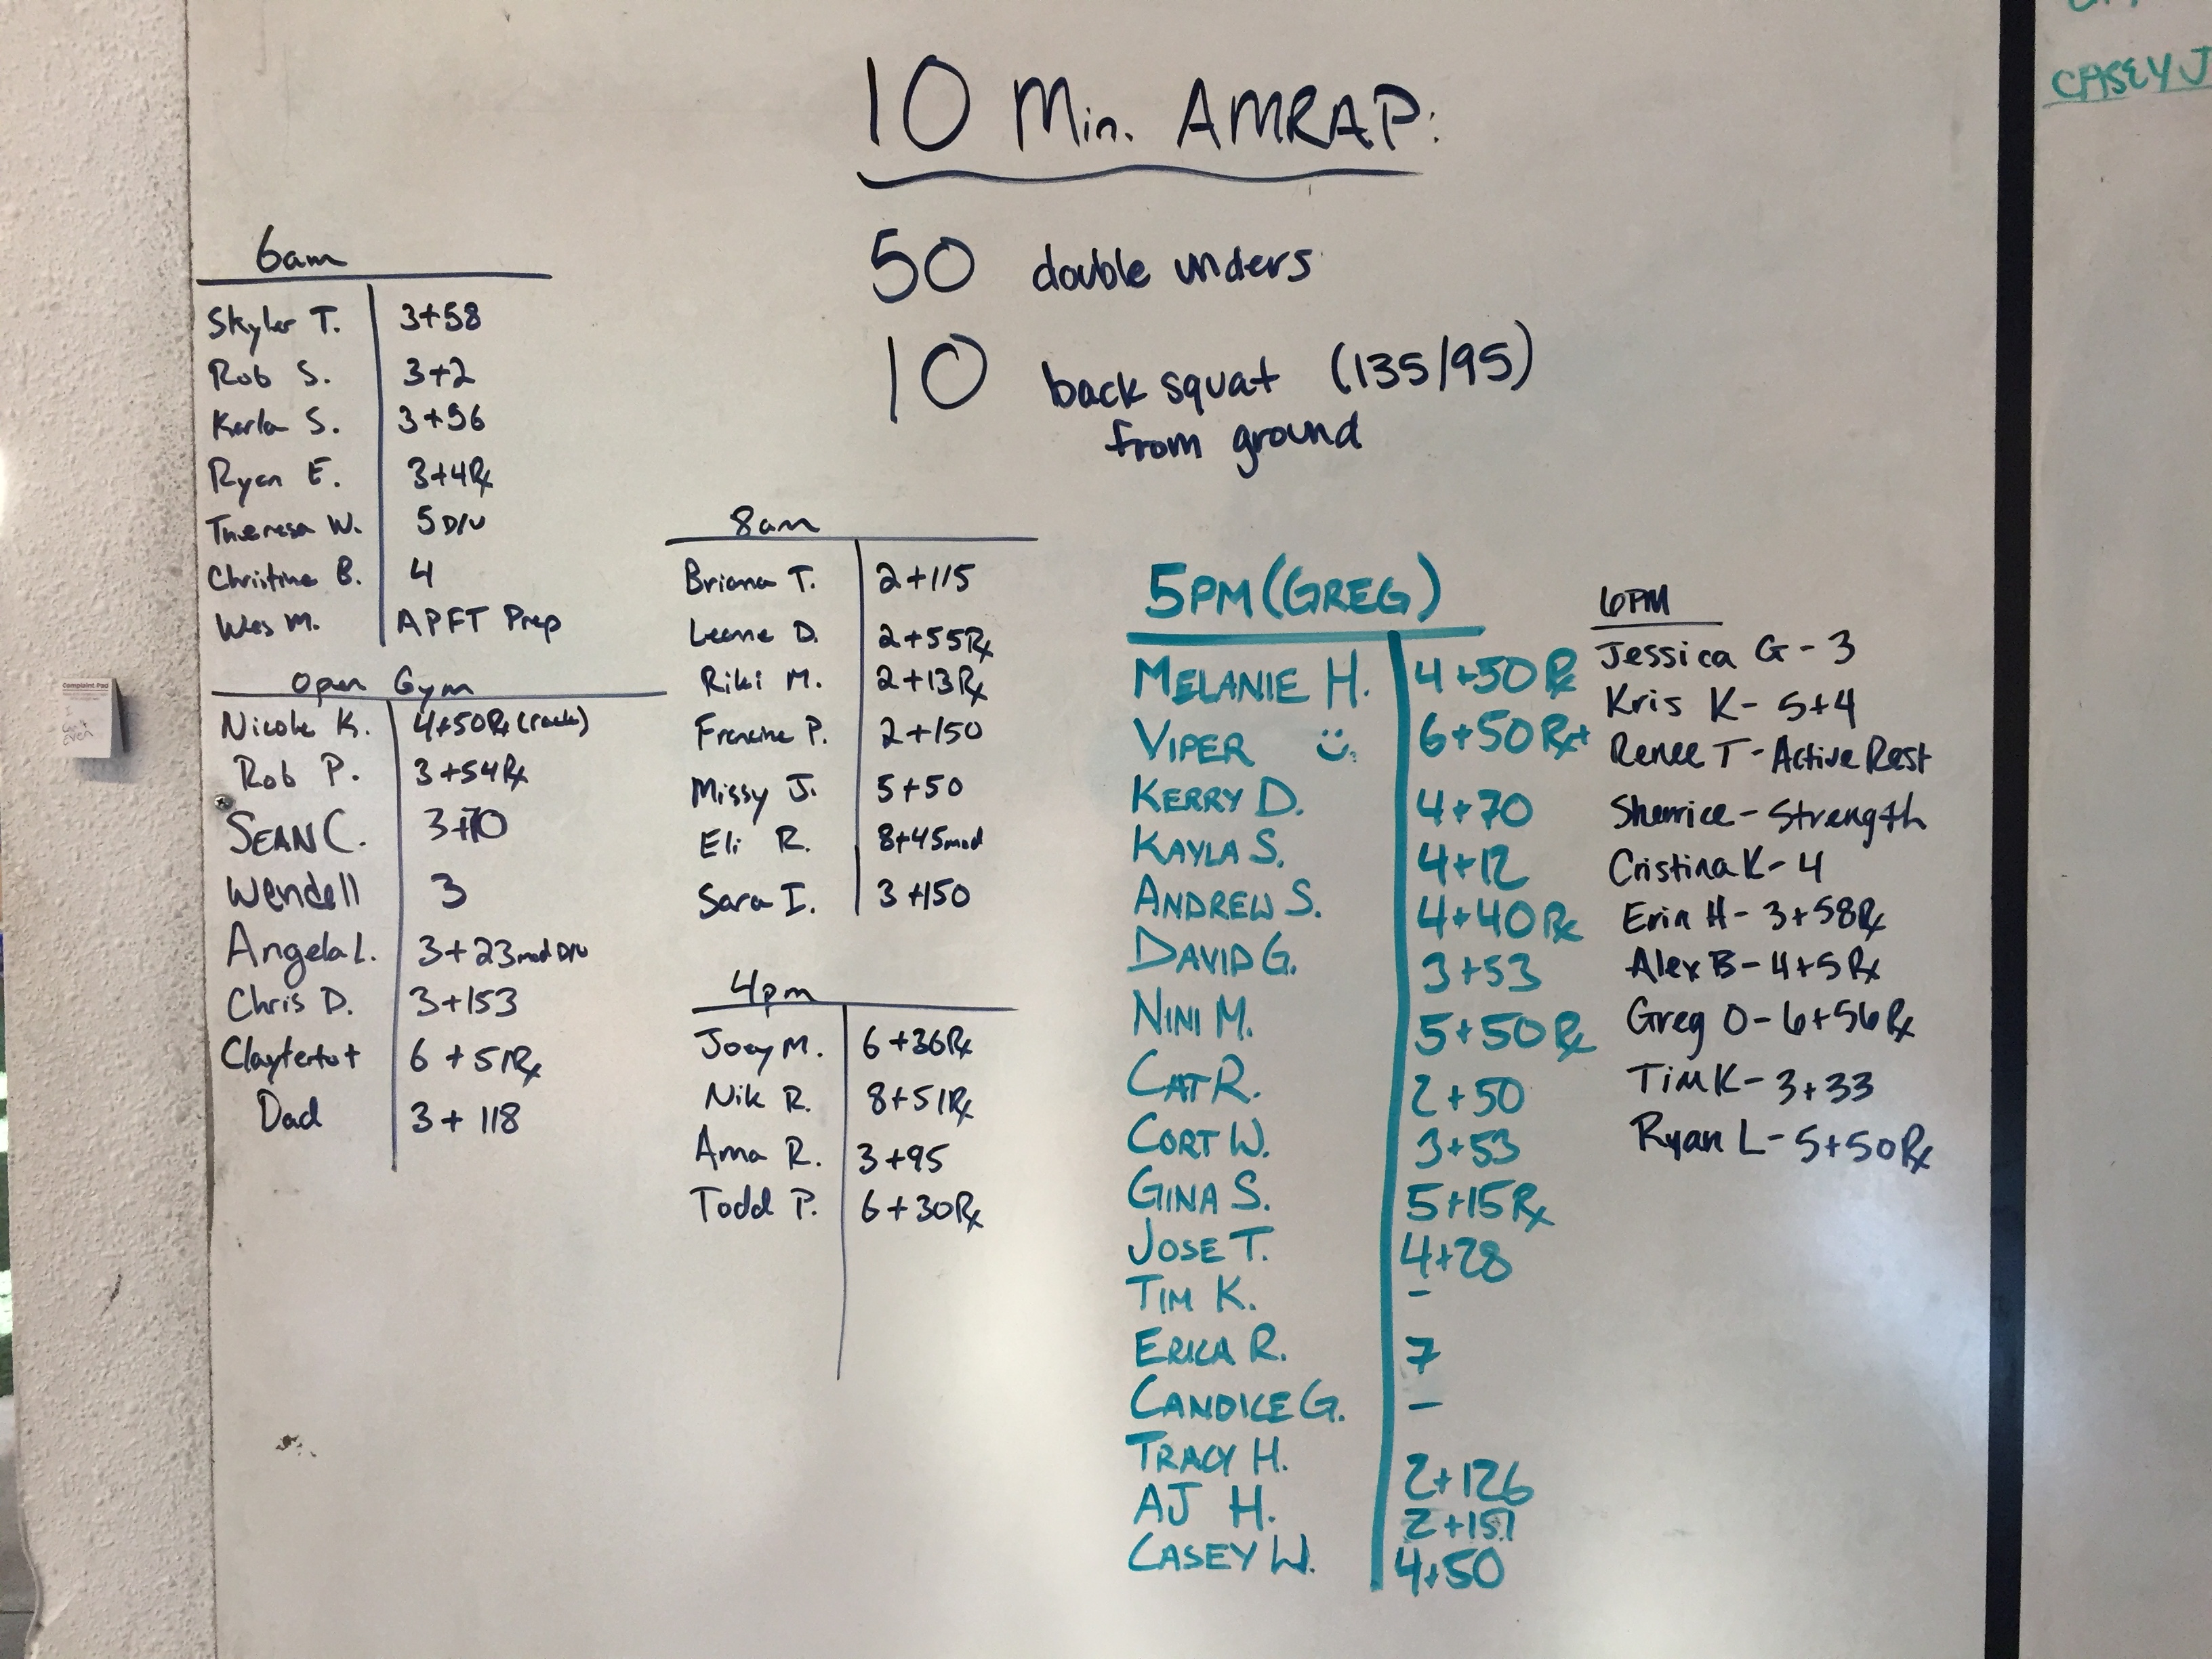 10 Min. AMRAP:
50 double unders
10 back squat (135/95)
from ground
6am
Skyler T. 3+58
Rob S. 3+2
Karla S. 3+56
Ryan E. 3+4Rx
Theresa W. 5 D/U
Christine B. 4
Wes M. APFT Prep
Open Gym
Nicole K. 4+50Rx (rack)
Rob P. 3+54Rx
SEAN C. 3+70
Wendell 3
Angela L. 3+23 mod D/U
Chris D. 3+153
Claytertot 6+51Rx
Dad 3+118
8am
Briana T. 2+115
Leanne D. 2+55Rx
Riki M. 2+13Rx
Francine P. 2+150
Missy J. 5+50
Eli R. 8+45mod
Sara I. 3+150
4pm
Joey M. 6+36Rx
Nik R. 8+51Rx
Anna R. 3+95
Todd P. 6+30Rx
5PM (GREG)
MELANIE H. 4+50Rx
VIPER 6+50Rx+
KERRY D. 4+70
KAYLA S. 4+12
ANDREW S. 4+40Rx
DAVID G. 3+53
NINI M. 5+50Rx
CAT R. 2+50
CORT W. 3+53
GINA S. 5+15Rx
JOSE T. 4+28
TIM K. -
ERICA R. 7
CANDICE G. -
TRACY H. 2+126
AJ H. 2+151
CASEY W. 4+50
6PM
Jessica G - 3
Kris K - 5+4
Renee T - Active Rest
Sherrice - Strength
Cristina K - 4
Erin H - 3+58Rx
Alex B - 4+5Rx
Greg O - 6+56Rx
Tim K - 3+33
Ryan L - 5+50Rx
CASEY J
Complaint Pad